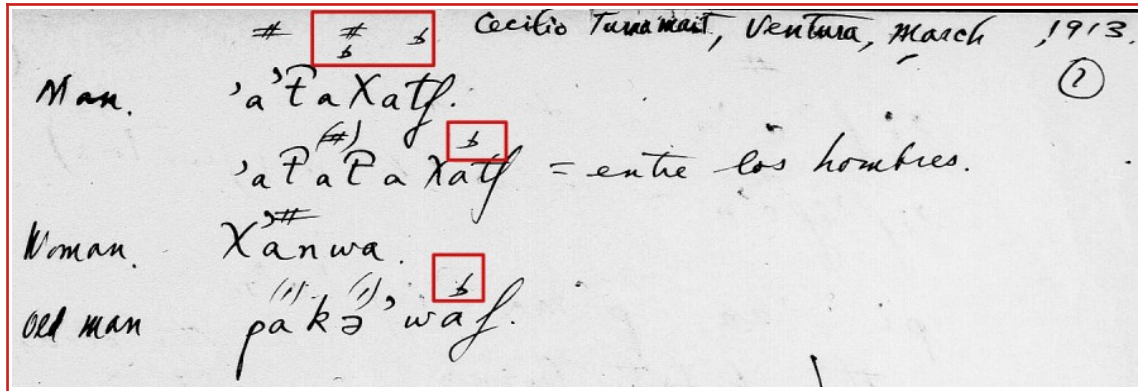 # # ♭ ♭ Cecilio Tumamait, Ventura, March ,1913.
Man. ’a’t̑aXatʃ. ②
(#) ♭
’at̑at̑aXatʃ = entre los hombres.
Woman. X’#anwa.
(ı) (ı) ♭
Old man pakə’waʃ.